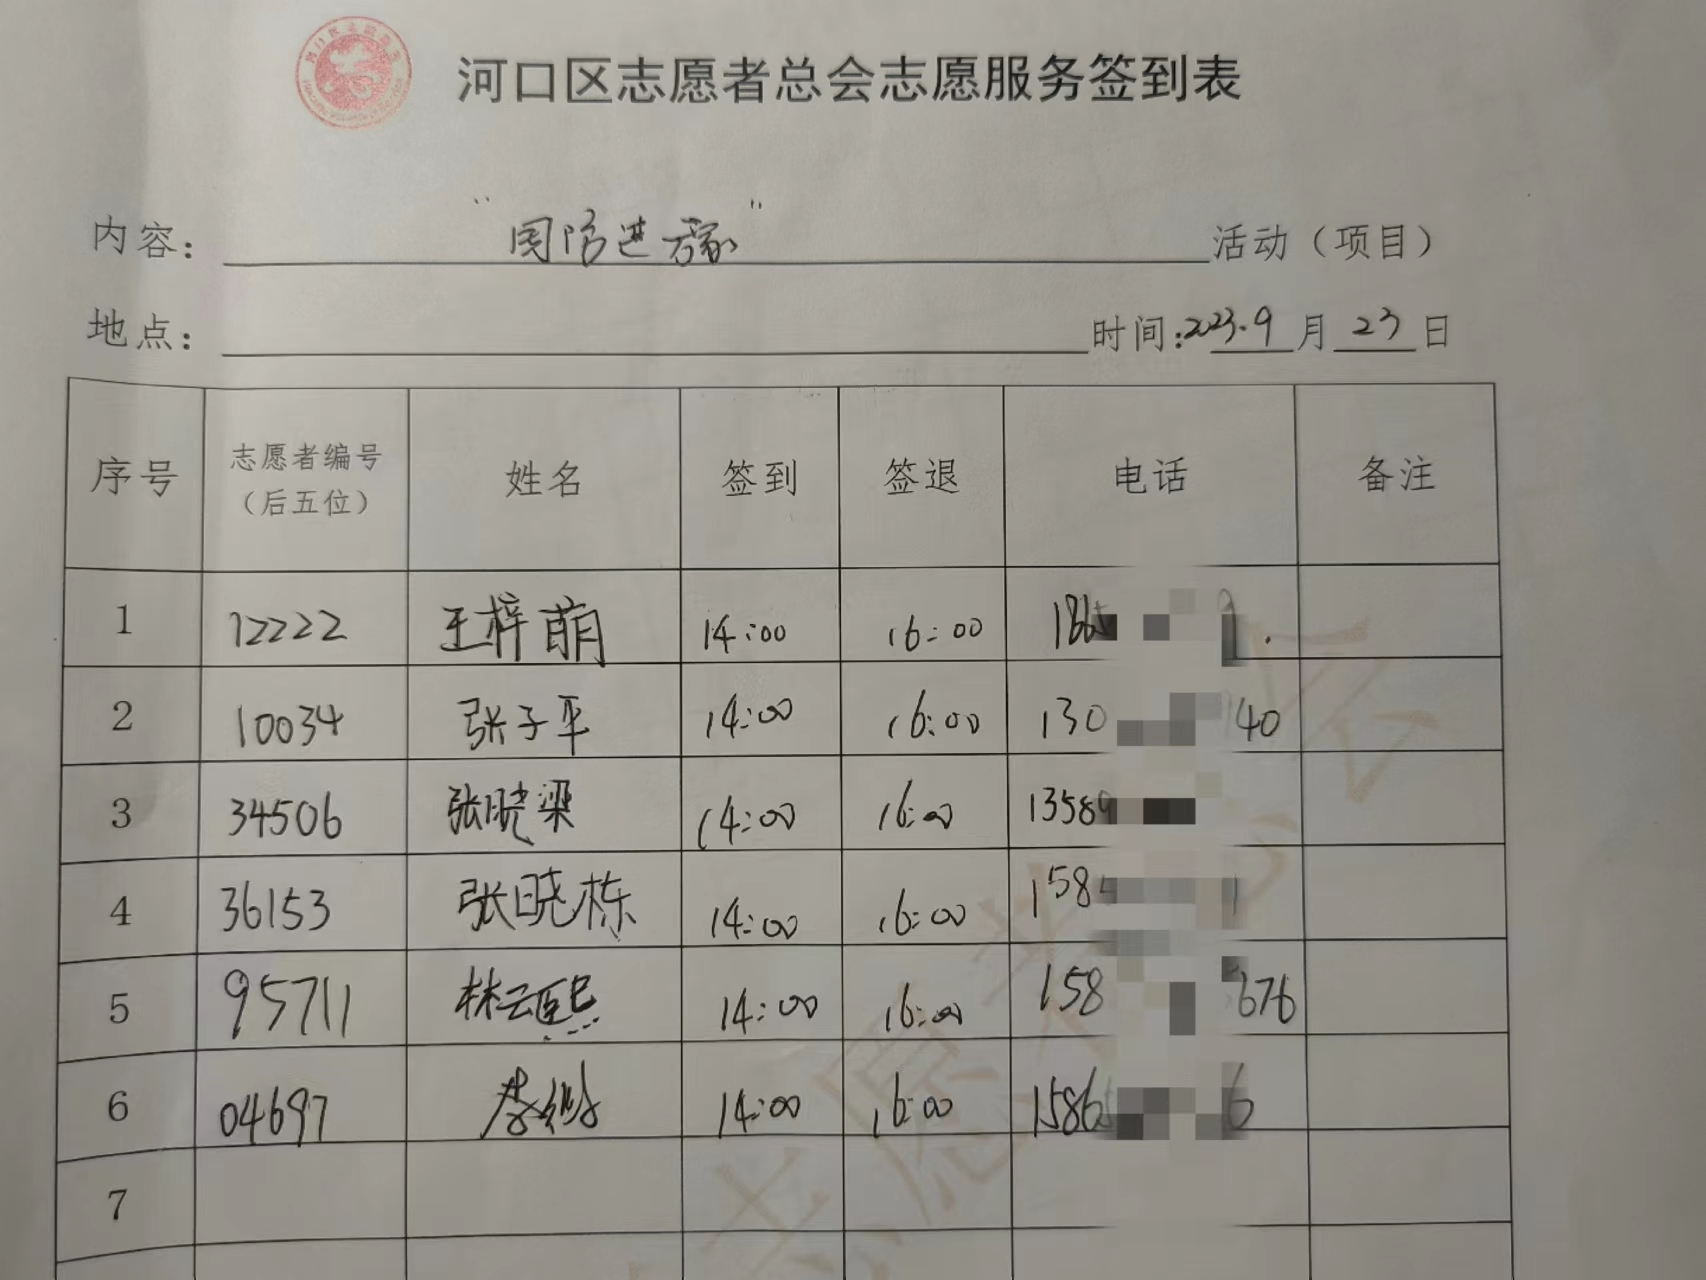 河口区志愿者总会志愿服务签到表
内容： "国防进万家" 活动（项目）
地点： 时间：2023.9月23日
序号 志愿者编号（后五位） 姓名 签到 签退 电话 备注
1 12222 王梓萌 14:00 16:00 1865 9.
2 10034 张子平 14:00 16:00 130 140
3 34506 张晓梁 14:00 16:00 13589
4 36153 张晓栋 14:00 16:00 158 1
5 95711 林云熙 14:00 16:00 158 676
6 04697 李 14:00 16:00 1586 6
7